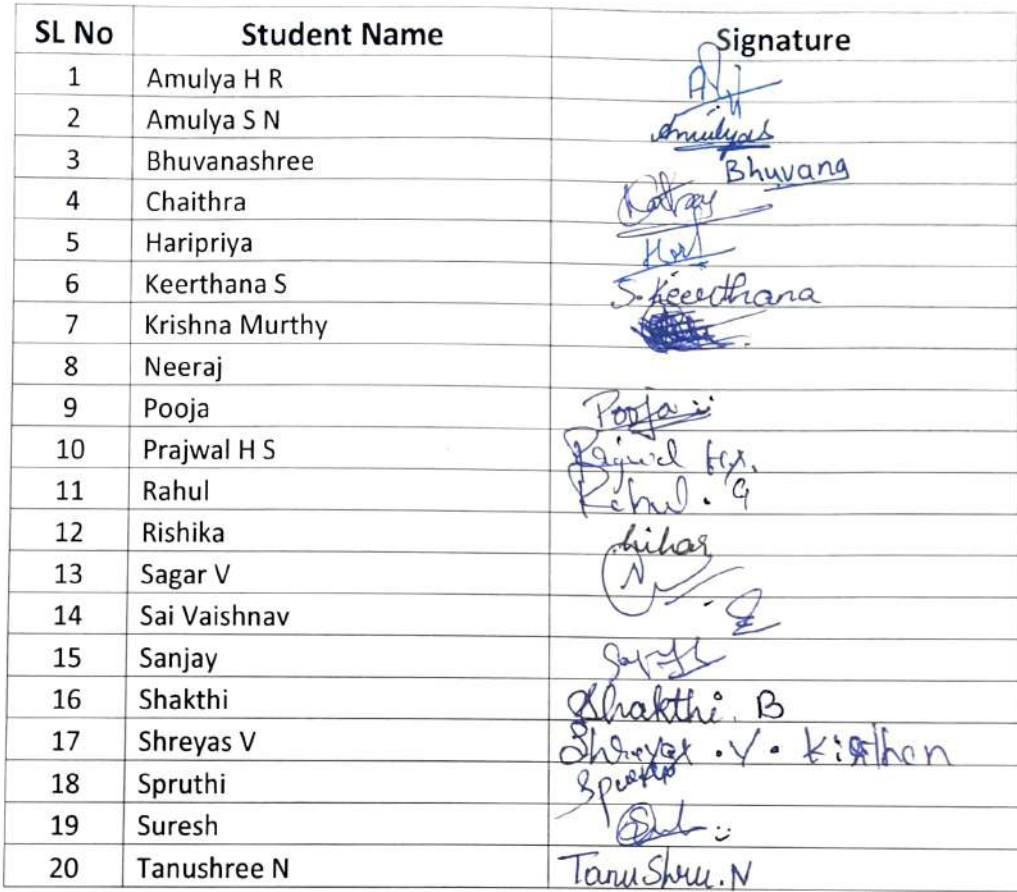 SL No Student Name Signature
1 Amulya H R
2 Amulya S N Amulyas
3 Bhuvanashree Bhuvana
4 Chaithra
5 Haripriya
6 Keerthana S S. Keerthana
7 Krishna Murthy
8 Neeraj
9 Pooja Pooja
10 Prajwal H S
11 Rahul Rahul . G
12 Rishika
13 Sagar V
14 Sai Vaishnav
15 Sanjay
16 Shakthi Shakthi. B
17 Shreyas V Shreyas . V .
18 Spruthi
19 Suresh
20 Tanushree N Tanushree. N